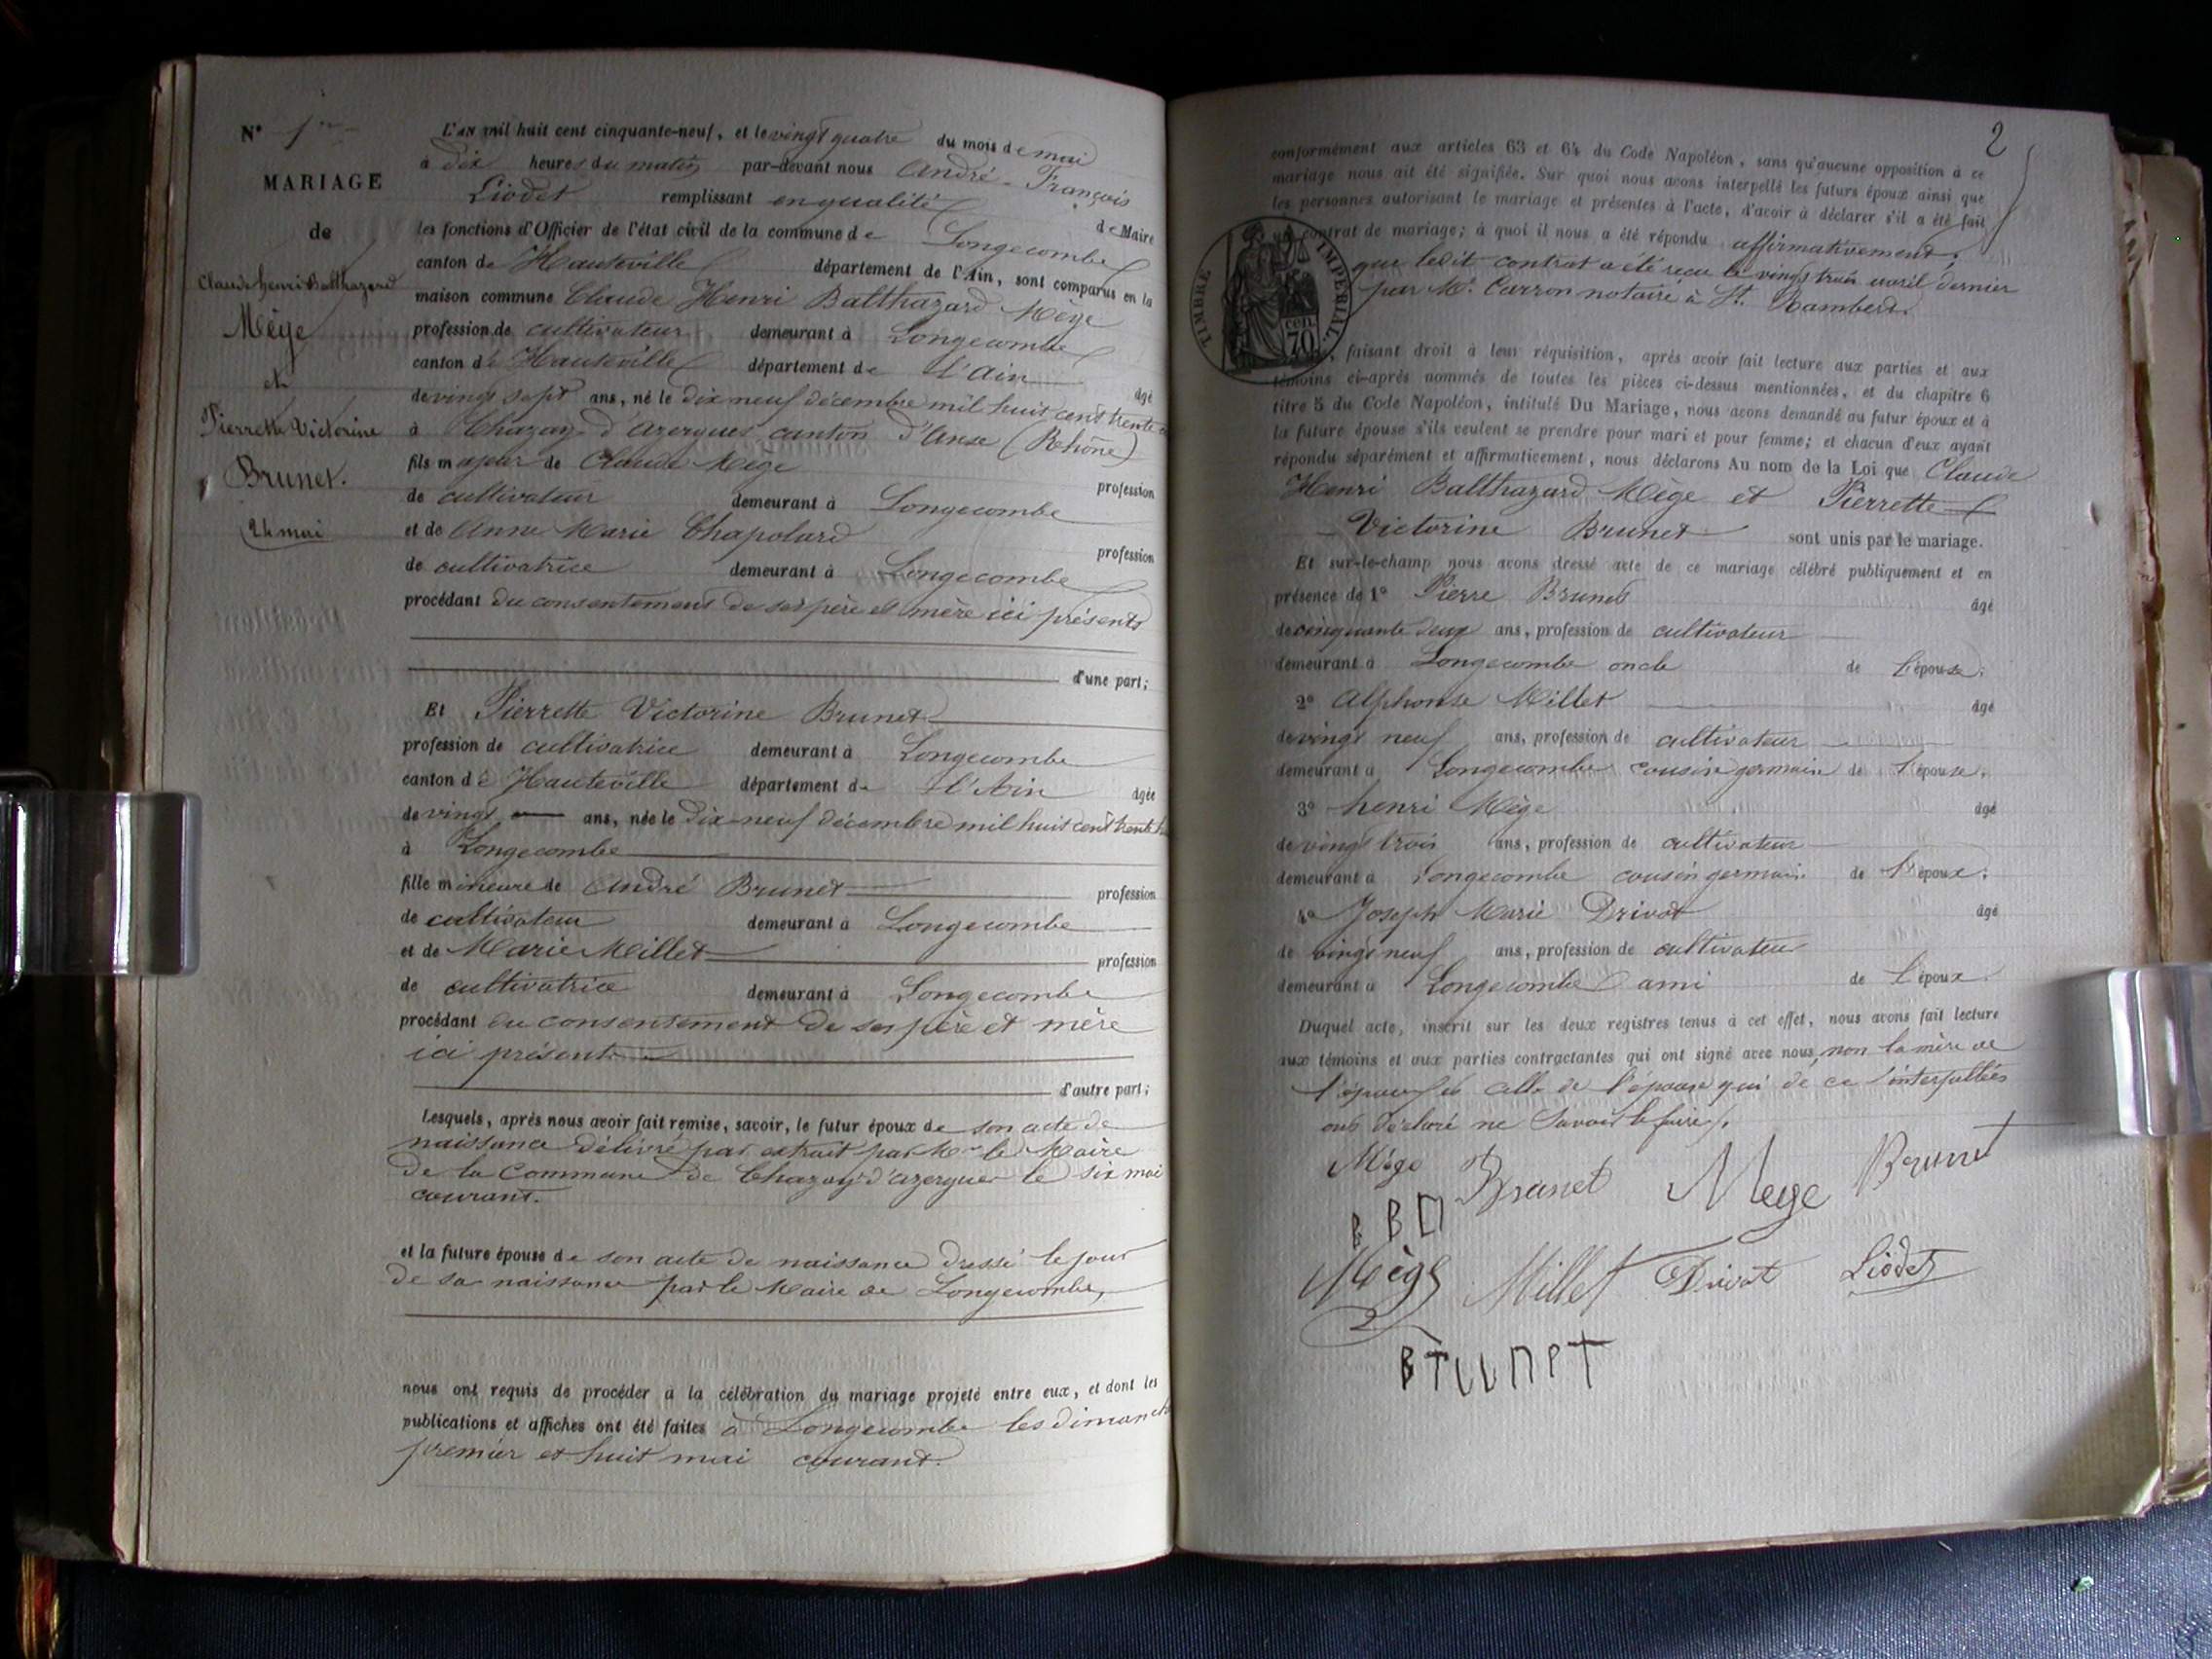 N° 1er
MARIAGE
de
Claude henri Balthazard
Mège
et
Pierrette Victorine
Brunet.
24 mai
L'an mil huit cent cinquante-neuf, et le vingt quatre du mois de mai
à dix heures du matin par-devant nous André-François
Liodet remplissant en qualité de Maire
les fonctions d'Officier de l'état civil de la commune de Longecombe
canton de Hauteville département de l'Ain, sont comparus en la
maison commune Claude Henri Balthazard Mège
profession de cultivateur demeurant à Longecombe
canton de Hauteville département de l'Ain âgé
de vingt sept ans, né le dix neuf décembre mil huit cent trente
à Chazay-d'azergues canton d'Anse (Rhône)
fils majeur de Claude Mège profession
de cultivateur demeurant à Longecombe
et de Anne Marie Chapolard profession
de cultivatrice demeurant à Longecombe
procédant du consentement de ses père et mère ici présents
d'une part;
Et Pierrette Victorine Brunet
profession de cultivatrice demeurant à Longecombe
canton de Hauteville département de l'Ain âgée
de vingt ans, née le dix-neuf décembre mil huit cent trente
à Longecombe
fille mineure de André Brunet profession
de cultivateur demeurant à Longecombe
et de Marie Millet profession
de cultivatrice demeurant à Longecombe
procédant du consentement de ses père et mère
ici présents
d'autre part;
Lesquels, après nous avoir fait remise, savoir, le futur époux de son acte de
naissance délivré par extrait par Mr le Maire
de la Commune de Chazay d'azergues le six mai
courant.
et la future épouse de son acte de naissance dressé le jour
de sa naissance par le Maire de Longecombe,
nous ont requis de procéder à la célébration du mariage projeté entre eux, et dont les
publications et affiches ont été faites à Longecombe les dimanche
premier et huit mai courant.
2
conformément aux articles 63 et 64 du Code Napoléon, sans qu'aucune opposition à ce
mariage nous ait été signifiée. Sur quoi nous avons interpellé les futurs époux ainsi que
les personnes autorisant le mariage et présentes à l'acte, d'avoir à déclarer s'il a été fait
un contrat de mariage; à quoi il nous a été répondu affirmativement,
que ledit contrat a été reçu le vingt trois avril dernier
par Me Carron notaire à St. Rambert.
TIMBRE IMPERIAL
70 cen
faisant droit à leur réquisition, après avoir fait lecture aux parties et aux
témoins ci-après nommés de toutes les pièces ci-dessus mentionnées, et du chapitre 6
titre 5 du Code Napoléon, intitulé Du Mariage, nous avons demandé au futur époux et à
la future épouse s'ils veulent se prendre pour mari et pour femme; et chacun d'eux ayant
répondu séparément et affirmativement, nous déclarons Au nom de la Loi que Claude
Henri Balthazard Mège et Pierrette
Victorine Brunet sont unis par le mariage.
Et sur-le-champ nous avons dressé acte de ce mariage célébré publiquement et en
présence de 1° Pierre Brunet âgé
de cinquante deux ans, profession de cultivateur
demeurant à Longecombe oncle de l'épouse;
2° Alphonse Millet âgé
de vingt neuf ans, profession de cultivateur
demeurant à Longecombe cousin germain de l'épouse,
3° henri Mège âgé
de vingt trois ans, profession de cultivateur
demeurant à Longecombe cousin germain de l'époux;
4° Joseph Marie Drivot âgé
de vingt neuf ans, profession de cultivateur
demeurant à Longecombe ami de l'époux
Duquel acte, inscrit sur les deux registres tenus à cet effet, nous avons fait lecture
aux témoins et aux parties contractantes qui ont signé avec nous, non la mère de
l'époux et celle de l'épouse qui de ce interpellées
ont déclaré ne savoir le faire.
Mège Brunet Mege Brunet
B B
Mège Millet Drivot Liodet
Brunet